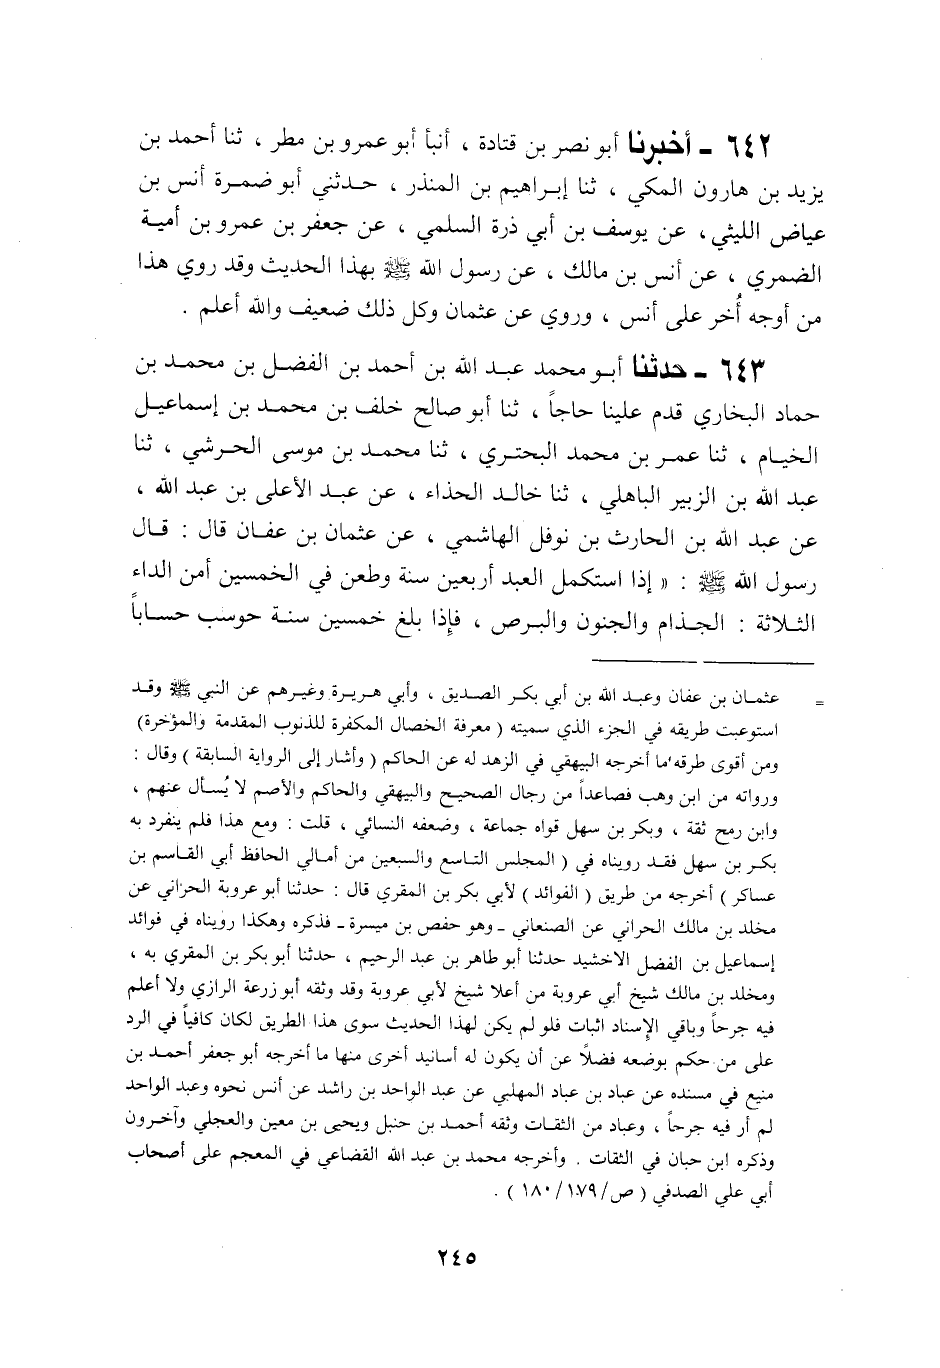 ٦٤٢ - أخبرنا أبو نصر بن قتادة ، أنبأ أبو عمرو بن مطر ، ثنا أحمد بن
يزيد بن هارون المكي ، ثنا إبراهيم بن المنذر ، حدثني أبو ضمرة أنس بن
عياض الليثي ، عن يوسف بن أبي ذرة السلمي ، عن جعفر بن عمرو بن أمية
الضمري ، عن أنس بن مالك ، عن رسول الله ﷺ بهذا الحديث وقد روي هذا
من أوجه أُخر على أنس ، وروي عن عثمان وكل ذلك ضعيف والله أعلم .
٦٤٣ - حدثنا أبو محمد عبد الله بن أحمد بن الفضل بن محمد بن
حماد البخاري قدم علينا حاجاً ، ثنا أبو صالح خلف بن محمد بن إسماعيل
الخيام ، ثنا عمر بن محمد البحتري ، ثنا محمد بن موسى الحرشي ، ثنا
عبد الله بن الزبير الباهلي ، ثنا خالد الحذاء ، عن عبد الأعلى بن عبد الله ،
عن عبد الله بن الحارث بن نوفل الهاشمي ، عن عثمان بن عفان قال : قال
رسول الله ﷺ : « إذا استكمل العبد أربعين سنة وطعن في الخمسين أمن الداء
الثلاثة : الجذام والجنون والبرص ، فإذا بلغ خمسين سنة حوسب حساباً
= عثمان بن عفان وعبد الله بن أبي بكر الصديق ، وأبي هريرة وغيرهم عن النبي ﷺ وقد
استوعبت طريقه في الجزء الذي سميته ( معرفة الخصال المكفرة للذنوب المقدمة والمؤخرة)
ومن أقوى طرقه ما أخرجه البيهقي في الزهد له عن الحاكم ( وأشار إلى الرواية السابقة ) وقال :
ورواته من ابن وهب فصاعداً من رجال الصحيح والبيهقي والحاكم والأصم لا يُسأل عنهم ،
وابن رمح ثقة ، وبكر بن سهل قواه جماعة ، وضعفه النسائي ، قلت : ومع هذا فلم ينفرد به
بكر بن سهل فقد رويناه في ( المجلس التاسع والسبعين من أمالي الحافظ أبي القاسم بن
عساكر ) أخرجه من طريق ( الفوائد ) لأبي بكر بن المقري قال : حدثنا أبو عروبة الحراني عن
مخلد بن مالك الحراني عن الصنعاني - وهو حفص بن ميسرة - فذكره وهكذا رويناه في فوائد
إسماعيل بن الفضل الاخشيد حدثنا أبو طاهر بن عبد الرحيم ، حدثنا أبو بكر بن المقري به ،
ومخلد بن مالك شيخ أبي عروبة من أعلا شيخ لأبي عروبة وقد وثقه أبو زرعة الرازي ولا أعلم
فيه جرحاً وباقي الإسناد اثبات فلو لم يكن لهذا الحديث سوى هذا الطريق لكان كافياً في الرد
على من حكم بوضعه فضلاً عن أن يكون له أسانيد أخرى منها ما أخرجه أبو جعفر أحمد بن
منيع في مسنده عن عباد بن عباد المهلبي عن عبد الواحد بن راشد عن أنس نحوه وعبد الواحد
لم أر فيه جرحاً ، وعباد من الثقات وثقه أحمد بن حنبل ويحيى بن معين والعجلي وآخرون
وذكره ابن حبان في الثقات . وأخرجه محمد بن عبد الله القضاعي في المعجم على أصحاب
أبي علي الصدفي ( ص/١٧٩/ ١٨٠ ) .
٢٤٥